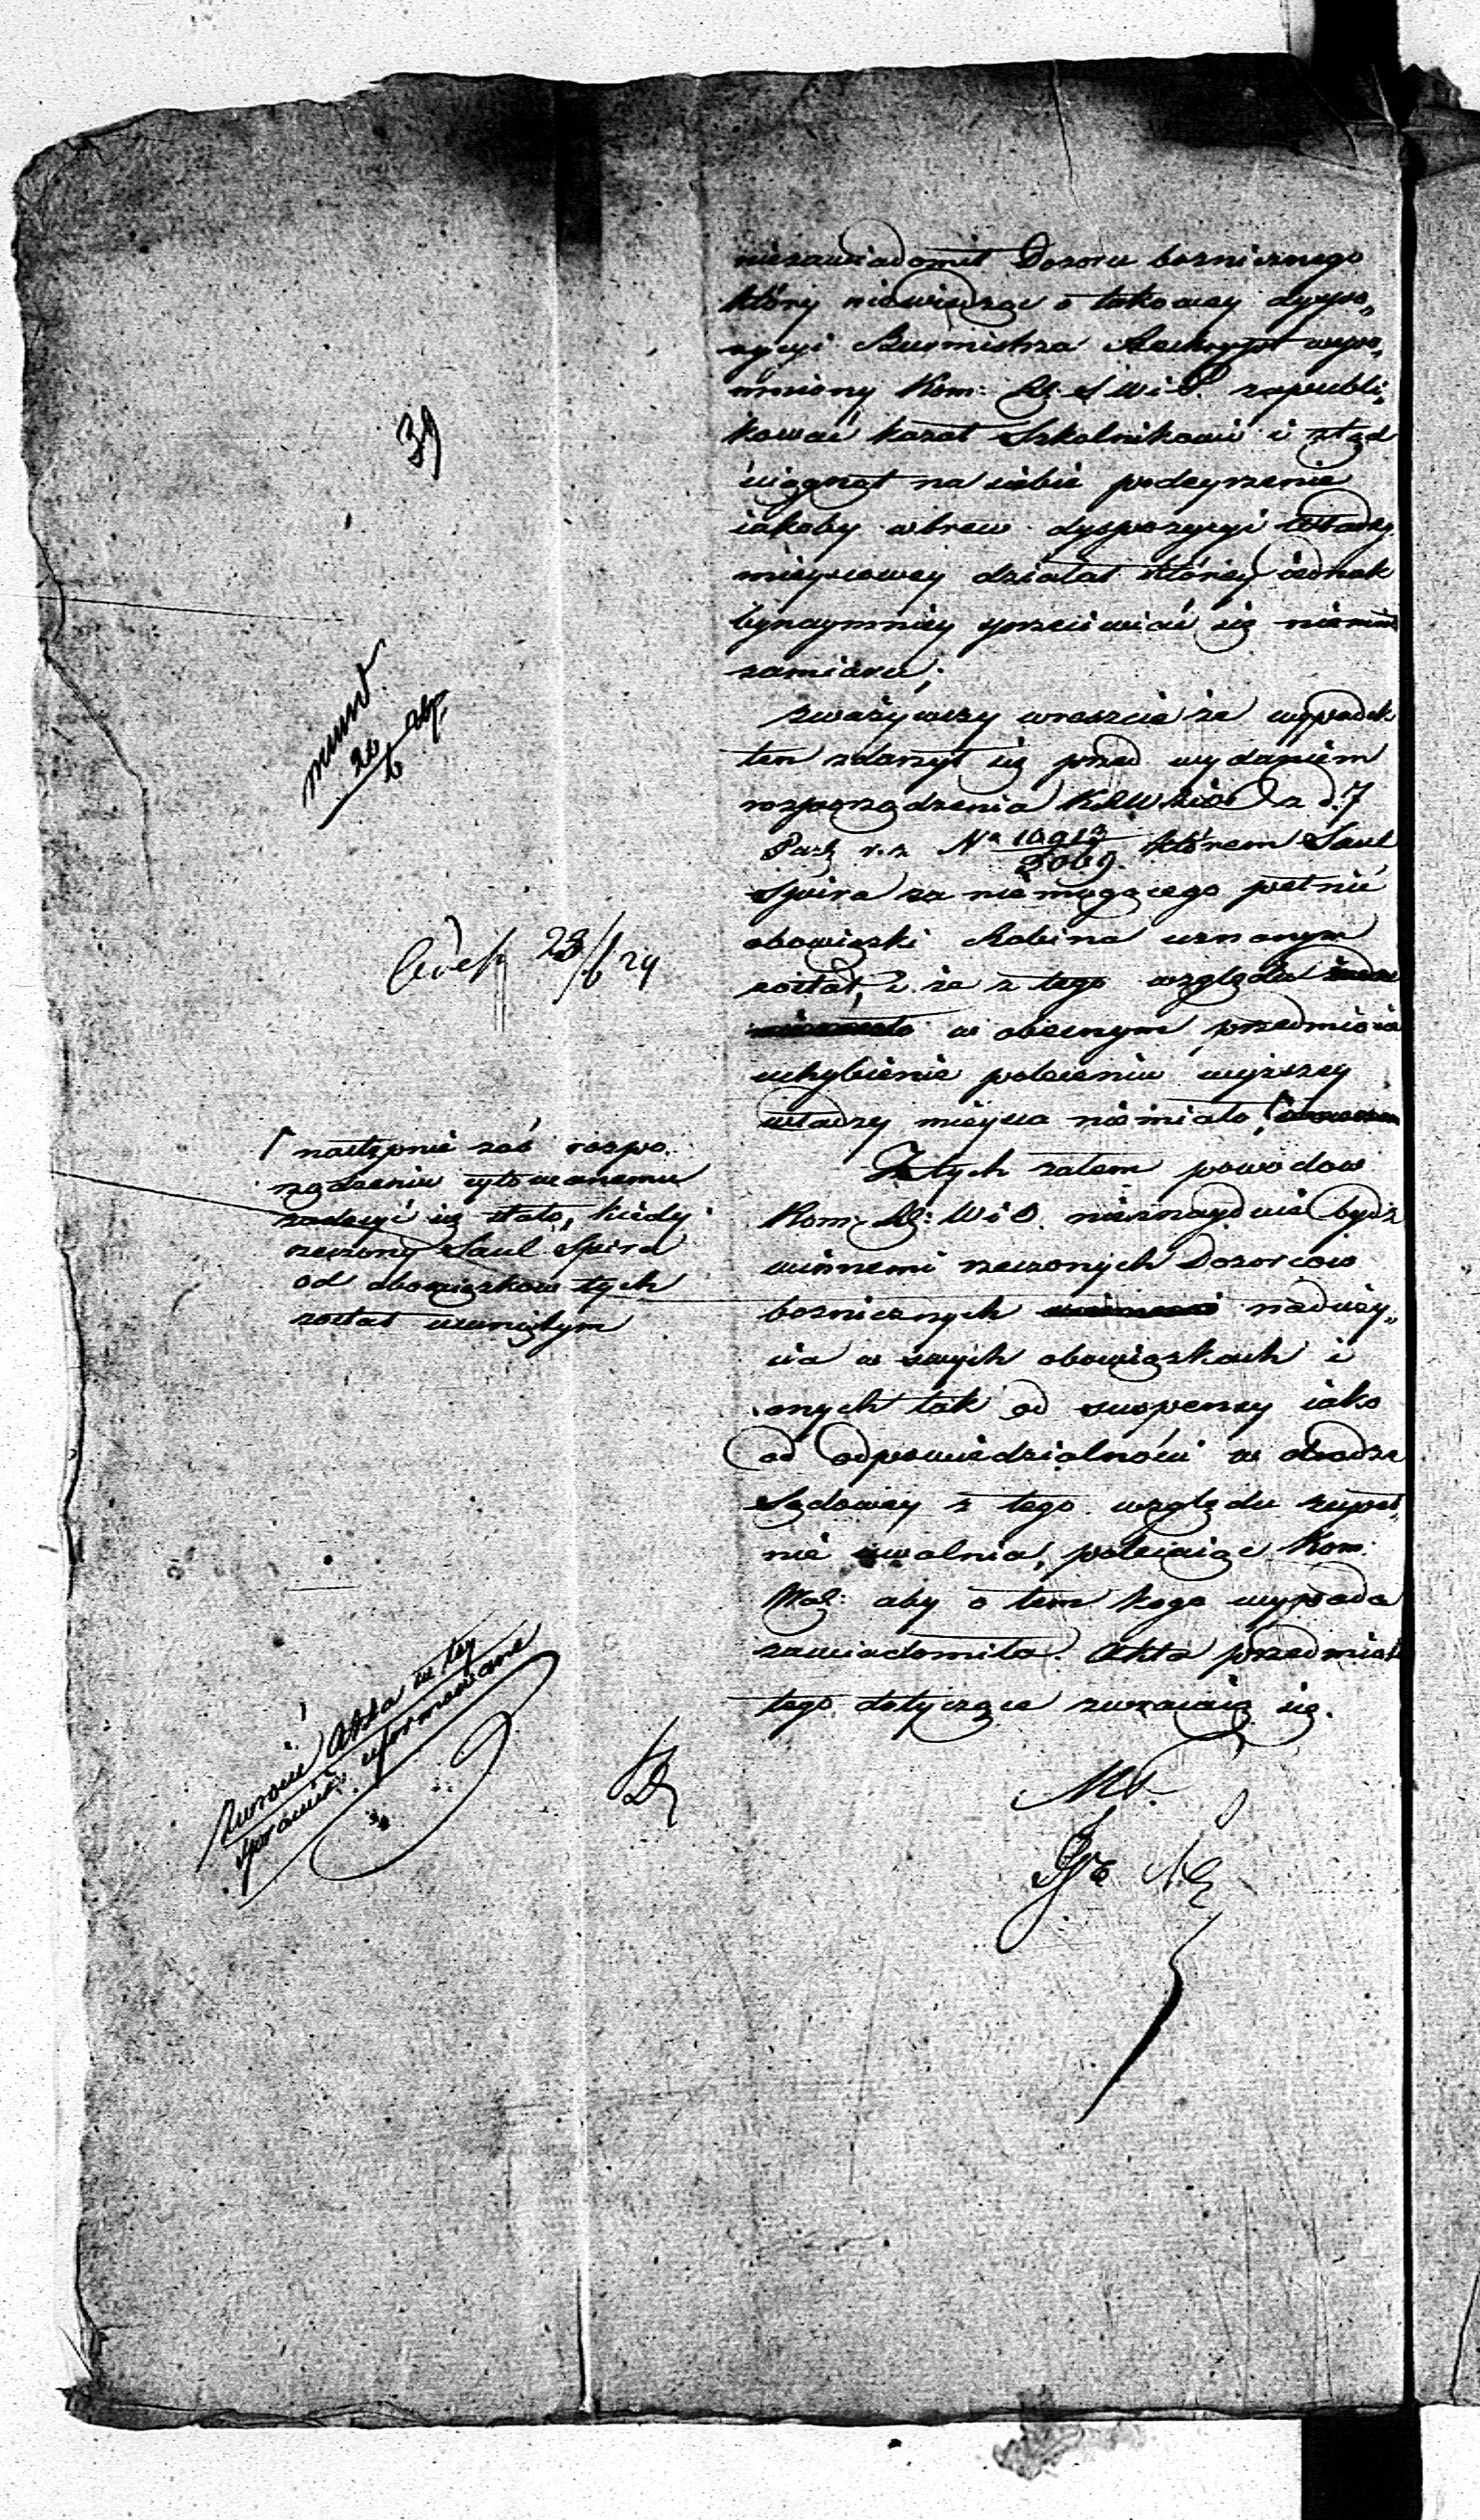 niezawiadomił Dozoru bozniczego
który niewiedząc o takowey dyspo„
zycyi Burmistrza Reskrypt wspo„
mniony Kom: Rz: S W i P. zapubli„
kować kazał Szkolnikowi i ztąd
ściągnął na siebie podeyrzenie
iakoby wbrew dyspozycyi Władzy
mieyscowey działał którey iednak
bynaymniey sprzeciwiać się niemiał
zamiaru;
zważywszy wreszcie że wypadek
ten zdarzył się przed wydaniem
rozporządzenia z d. 7
Paźd r. z. No 10913/3069. którem Saul
Spira za niemogącego pełnić
obowiązki Rabina uznanym
został, i że z tego względu
w obecnym przedmiocie
uchybienie poleceniu wyższey
władzy mieysca niemiało
Z tych zatem powodów
Kom: Rz: W i O. nieznayduie bydź
winnemi rzeczonych Dozorców
bozniczych naduży„
cia w swych obowiązkach i
onych tak od suspensy iako
od odpowiedzialności w drodze
Sądowey z tego względu zupeł„
nie uwalnia, polecaiąc Kom:
Wdz: aby o tem kogo wypada
zawiadomiła. Akta przedmiotu
tego dotyczące zwracaią się.
39
23/6 29
następnie zaś rozpo
rządzeniu cytowanemu
zadosyć się stało, kiedy
rzeczony Saul Spira
od obowiązków tych
został usuniętym
Zwrócić Akta w tey
sprawie uformowane